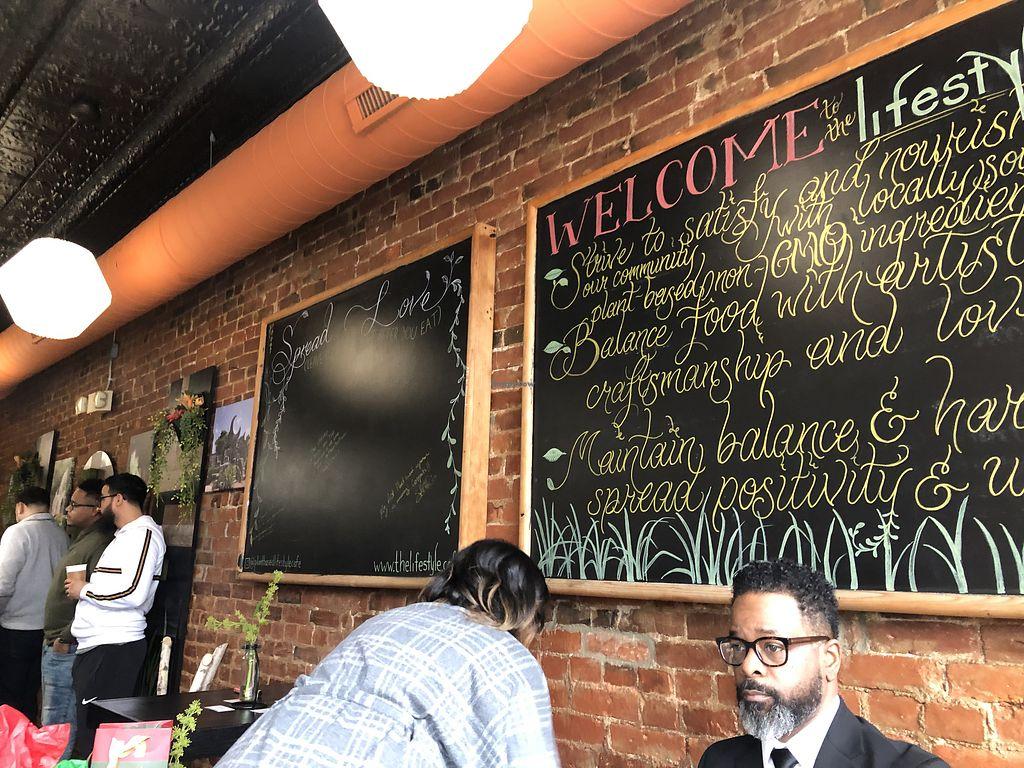 Spread Love
YOU EAT)
www.thelifestyle.c
WELCOME to the lifesty
Strive to satisfy and nourish
our community with locally sou
plant-based, non-GMO ingredien
Balance food with artist
craftsmanship and lov
Maintain balance & har
spread positivity & w